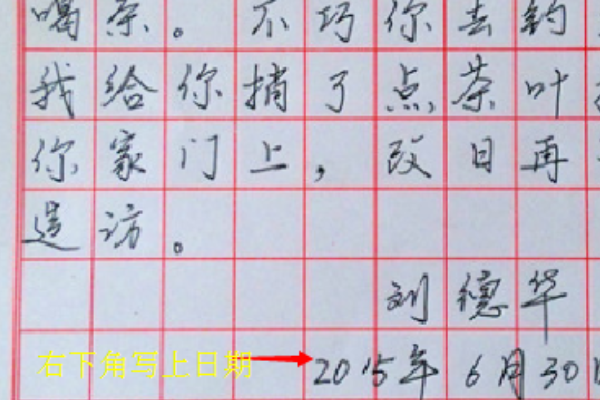 喝茶。不巧你去钓
我给你捎了点茶叶
你家门上，改日再
造访。
刘德华
右下角写上日期 2015年6月30日